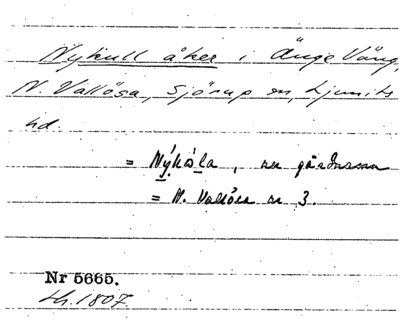 Nykull åker i Änge Vång,
N. Vallösa, Sjörup sn, Ljunits
hd.
= Nýkúla, nu gårdarna
= N. Vallösa nr 3.
Nr 5665.
Lh. 1807